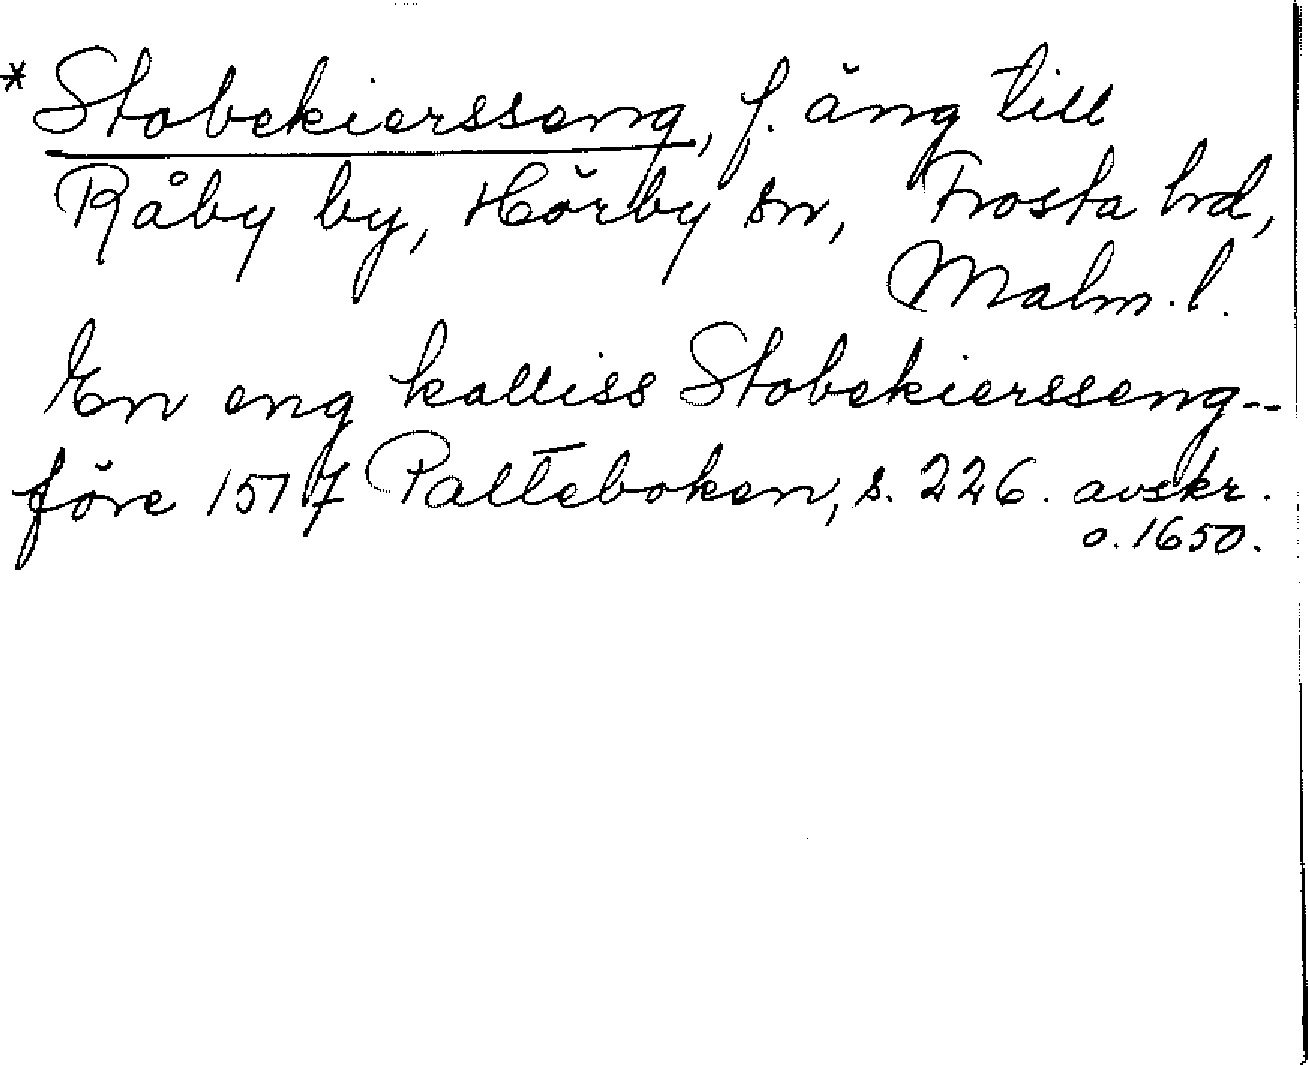 * Stobekiersseng, f. äng till
Råby by, Hörby sn, Frosta hd,
Malm. l.
En eng kalliss Stobekiersseng--
före 1517 Palteboken, s. 226. avskr.
o. 1650.